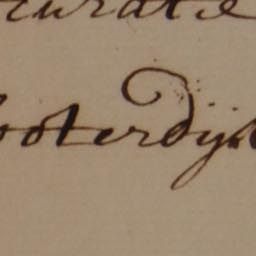 curate
ooterdijk